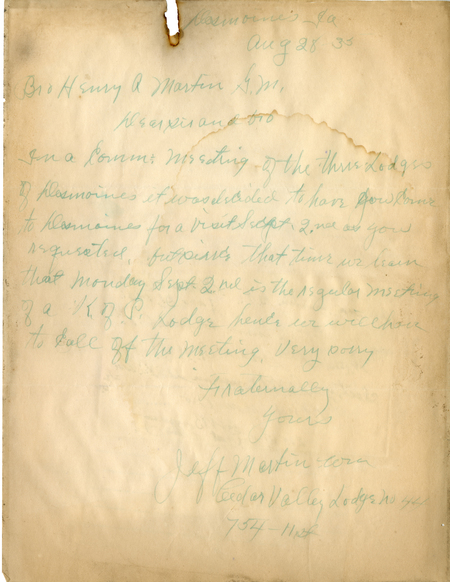 Desmoines, Ia.
Aug 28 35
Bro Henry A Martin G.M.
Dear sir and bro
In a Comme Meeting of the three Lodges
of Desmoines it was decided to have you Come
to Desmoines for a visit Sept. 2nd as you
requested. that time we learn
that Monday Sept 2nd is the regular meeting
of a K of P. Lodge hents we will have
to Call off the Meeting. Very sorry
Fraternally
Yours
Jeff Martin - com
Cedar Valley Lodge no
754 - 11 st